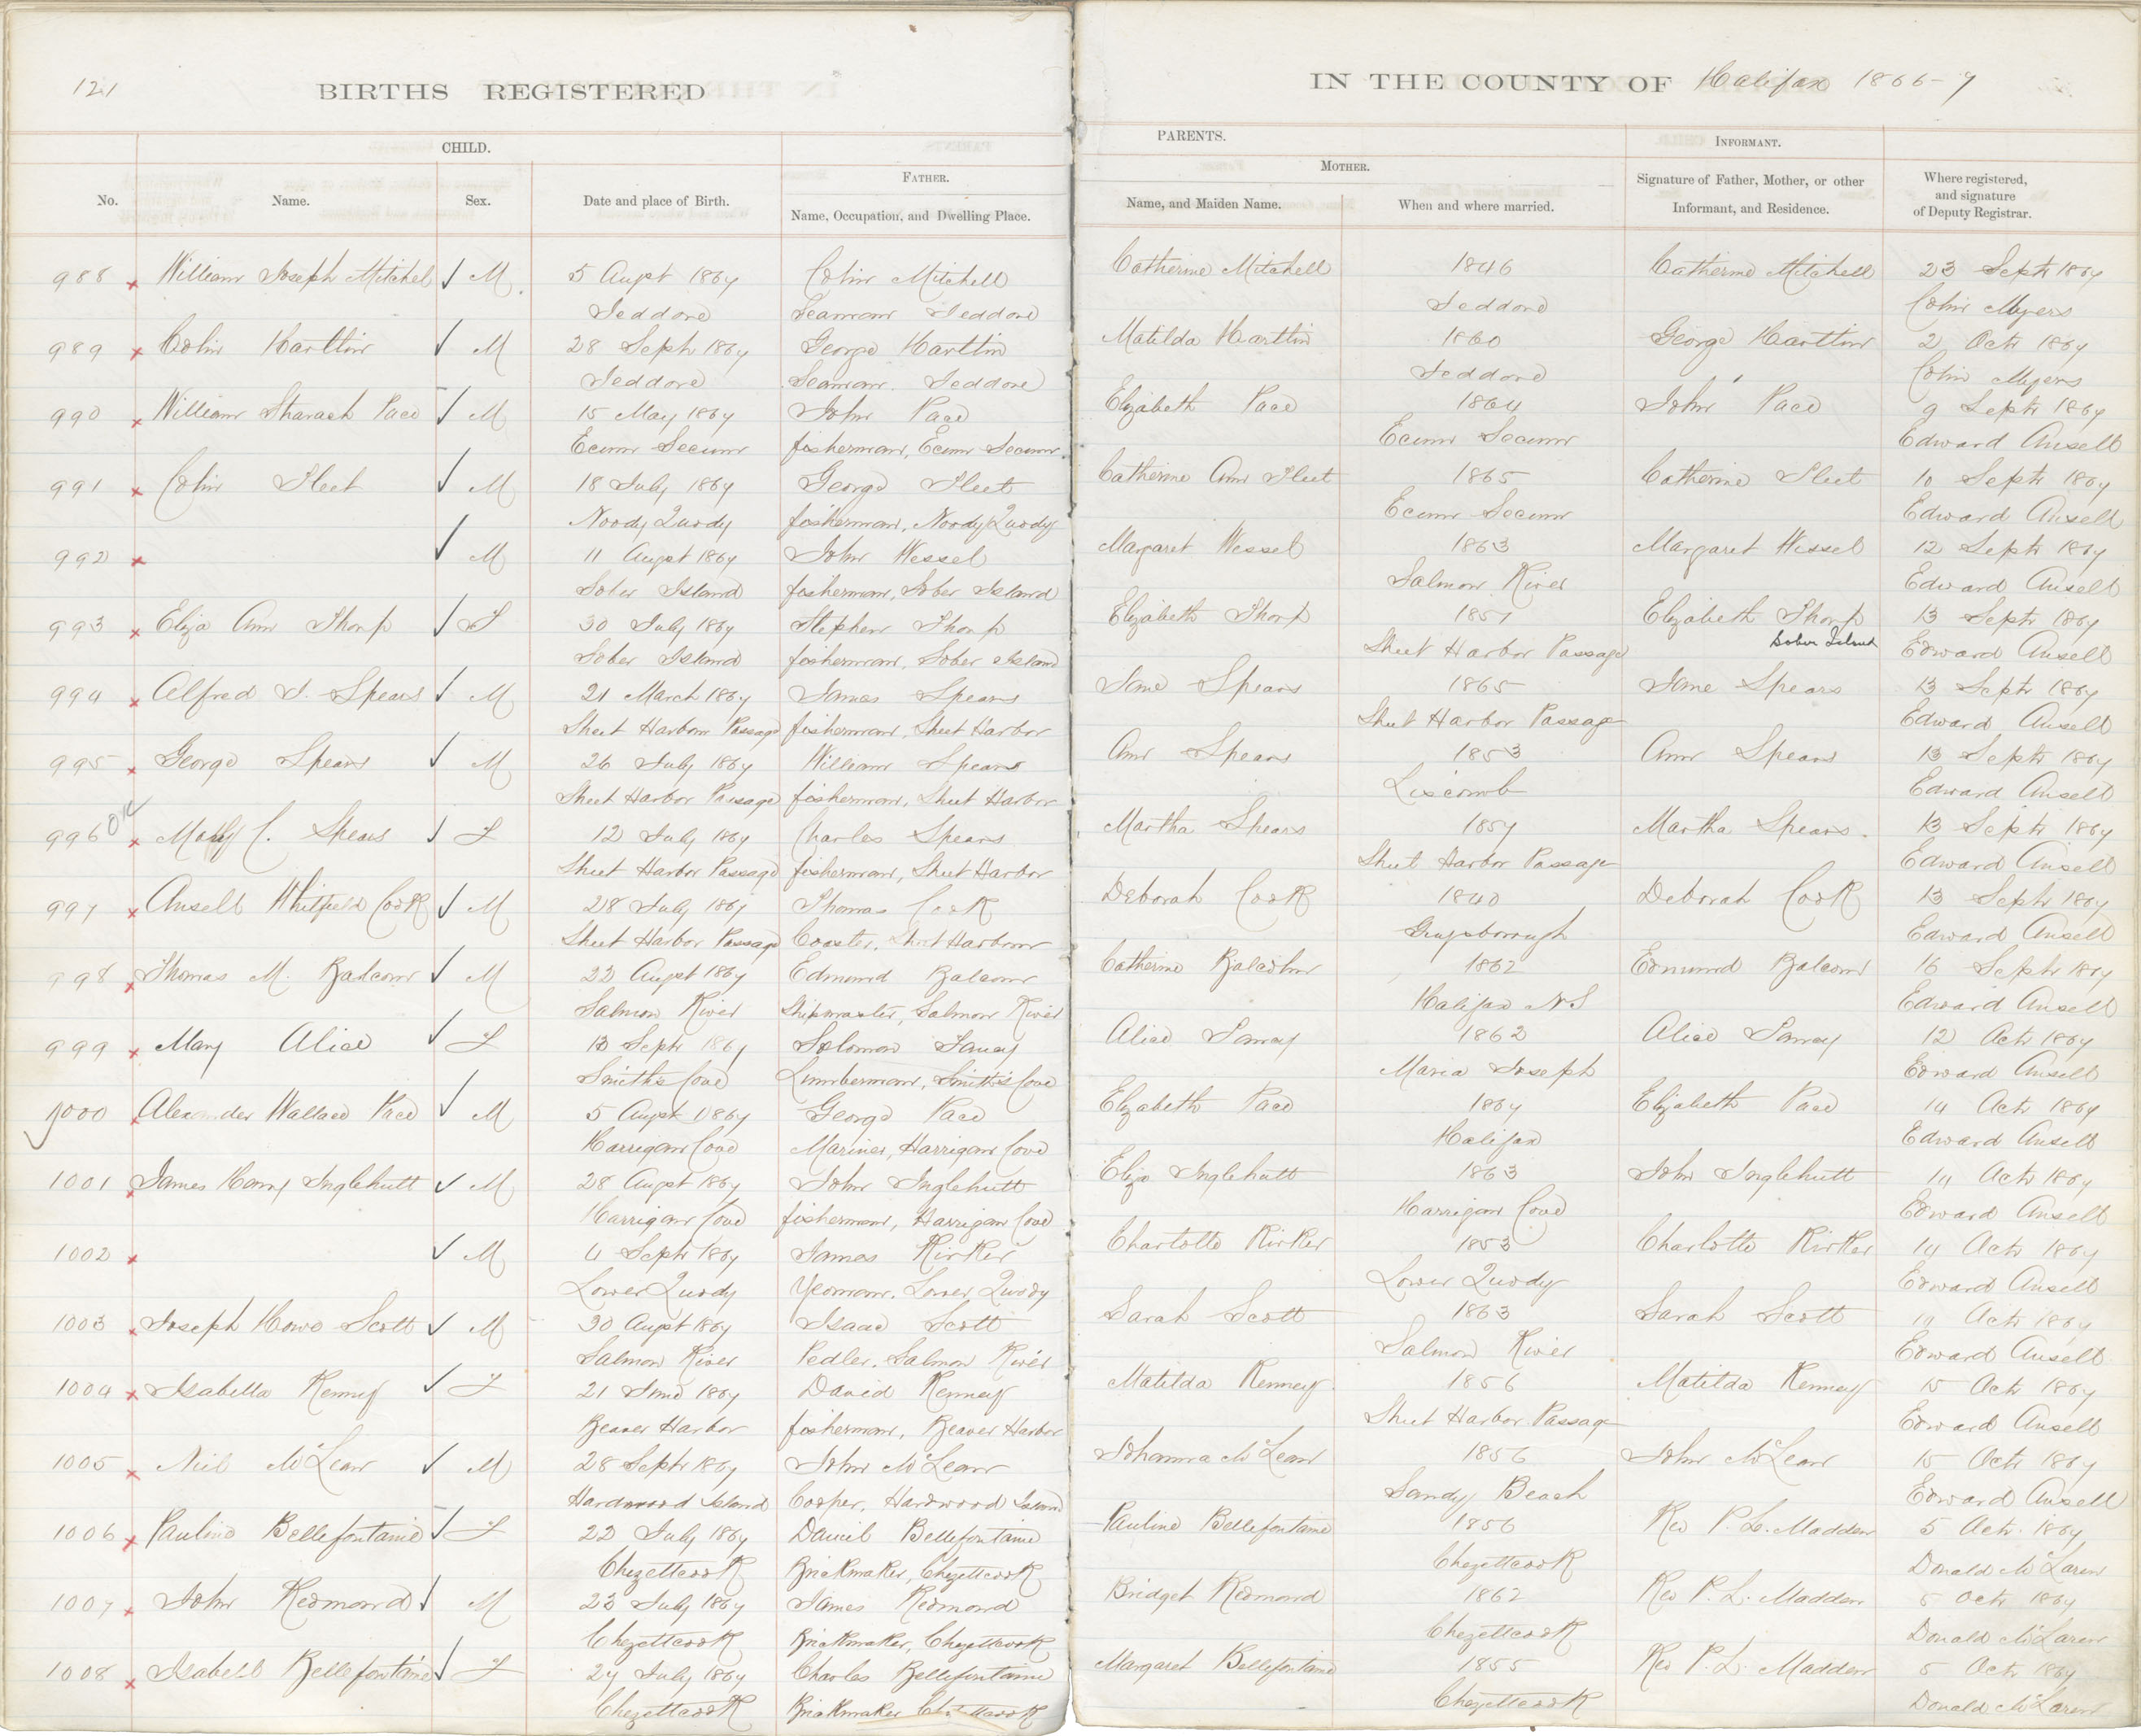 121
BIRTHS REGISTERED
IN THE COUNTY OF Halifax 1866-7
CHILD.
PARENTS.
INFORMANT.
FATHER.
MOTHER.
No.
Name.
Sex.
Date and place of Birth.
Name, Occupation, and Dwelling Place.
Name, and Maiden Name.
When and where married.
Signature of Father, Mother, or other
Informant, and Residence.
Where registered,
and signature
of Deputy Registrar.
988 x William Joseph Mitchel ✓ M 5 Augst 1867 Colin Mitchell Catherine Mitchell 1846 Catherine Mitchell 23 Septr 1867
Jeddore Seaman Jeddore Jeddore Colin Myers
989 x Colin Hartlin ✓ M 28 Septr 1867 George Hartlin Matilda Hartlin 1860 George Hartlin 2 Octr 1867
Jeddore Seaman. Jeddore Jeddore Colin Myers
990 x William Pace ✓ M 15 May 1867 John Pace Elizabeth Pace 1864 John Pace 9 Septr 1867
Ecum Secum fisherman, Ecum Secum Ecum Secum Edward Ansell
991 x Colin Fleet ✓ M 18 July 1867 George Fleet Catherine Ann Fleet 1865 Catherine Fleet 10 Septr 1867
Noody Quody fisherman, Noody Quody Ecum Secum Edward Ansell
992 x ✓ M 11 Augst 1867 John Wessel Margaret Wessel 1863 Margaret Wessel 12 Septr 1867
Sober Island fisherman, Sober Island Salmon River Edward Ansell
993 x Eliza Ann Thorp ✓ F 30 July 1867 Stephen Thorp Elizabeth Thorp 1857 Elizabeth Thorp 13 Septr 1867
Sober Island fisherman, Sober Island Sheet Harbor Passage Sober Island Edward Ansell
994 x Alfred J. Spears ✓ M 21 March 1867 James Spears Jane Spears 1865 Jane Spears 13 Septr 1867
Sheet Harbour Passage fisherman, Sheet Harbor Sheet Harbor Passage Edward Ansell
995 x George Spears ✓ M 26 July 1867 William Spears Ann Spears 1853 Ann Spears 13 Septr 1867
Sheet Harbor Passage fisherman, Sheet Harbor Liscomb Edward Ansell
996 OK x C. Spears ✓ F 12 July 1867 Charles Spears Martha Spears 1857 Martha Spears. 13 Septr 1867
Sheet Harbor Passage fisherman, Sheet Harbor Sheet Harbor Passage Edward Ansell
997 x Ansell Whitfield Cook ✓ M 28 July 1867 Thomas Cook Deborah Cook 1840 Deborah Cook 13 Septr 1867
Sheet Harbor Passage Coaster, Sheet Harbour Guysborough Edward Ansell
998 x Thomas M. Balcom ✓ M 23 Augst 1867 Edmund Balcom Catherine Balcolm 1862 Edmund Balcom 16 Septr 1867
Salmon River Shipmaster, Salmon River Halifax N S Edward Ansell
999 x Mary Alice ✓ F 13 Septr 1867 Solomon Alice 1862 Alice 12 Octr 1867
Smith's Cove Lumberman, Smith's Cove Maria Joseph Edward Ansell
1000 x Alexander Wallace Pace ✓ M 5 Augst 1867 George Pace Elizabeth Pace 1867 Elizabeth Pace 14 Octr 1867
Harrigan Cove Mariner, Harrigan Cove Halifax Edward Ansell
1001 x James Henry Inglehutt ✓ M 28 Augst 1867 John Inglehutt Eliza Inglehutt 1863 John Inglehutt 14 Octr 1867
Harrigan Cove fisherman, Harrigan Cove Harrigan Cove Edward Ansell
1002 x ✓ M 4 Septr 1867 James Kirker Charlotte Kirker 1853 Charlotte Kirker 14 Octr 1867
Lower Quody Yeoman, Lower Quody Lower Quody Edward Ansell
1003 x Joseph Howe Scott ✓ M 30 Augst 1867 Isaac Scott Sarah Scott 1863 Sarah Scott 14 Octr 1867
Salmon River Pedler, Salmon River Salmon River Edward Ansell
1004 x Isabella Kenney ✓ F 21 June 1867 David Kenney Matilda Kenney 1856 Matilda Kenney 15 Octr 1867
Beaver Harbor fisherman, Beaver Harbor Sheet Harbor Passage Edward Ansell
1005 x Neil McLean ✓ M 28 Septr 1867 John McLean Johanna McLean 1856 John McLean 15 Octr 1867
Hardwood Island Cooper, Hardwood Island Sandy Beach Edward Ansell
1006 x Pauline Bellefontaine ✓ F 22 July 1867 Daniel Bellefontaine Pauline Bellefontaine 1856 Rev P. L. Madden 5 Octr. 1867
Chezettcook Brickmaker, Chezettcook Chezettcook Donald McLaren
1007 x John Redmond ✓ M 23 July 1867 James Redmond Bridget Redmond 1862 Rev P. L. Madden 5 Octr 1867
Chezettcook Brickmaker, Chezettcook Chezettcook Donald McLaren
1008 x Isabell Bellefontaine ✓ F 27 July 1867 Charles Bellefontaine Margaret Bellefontaine 1855 Rev P. L. Madden 5 Octr 1867
Chezettcook Brickmaker Chezettcook Chezettcook Donald McLaren